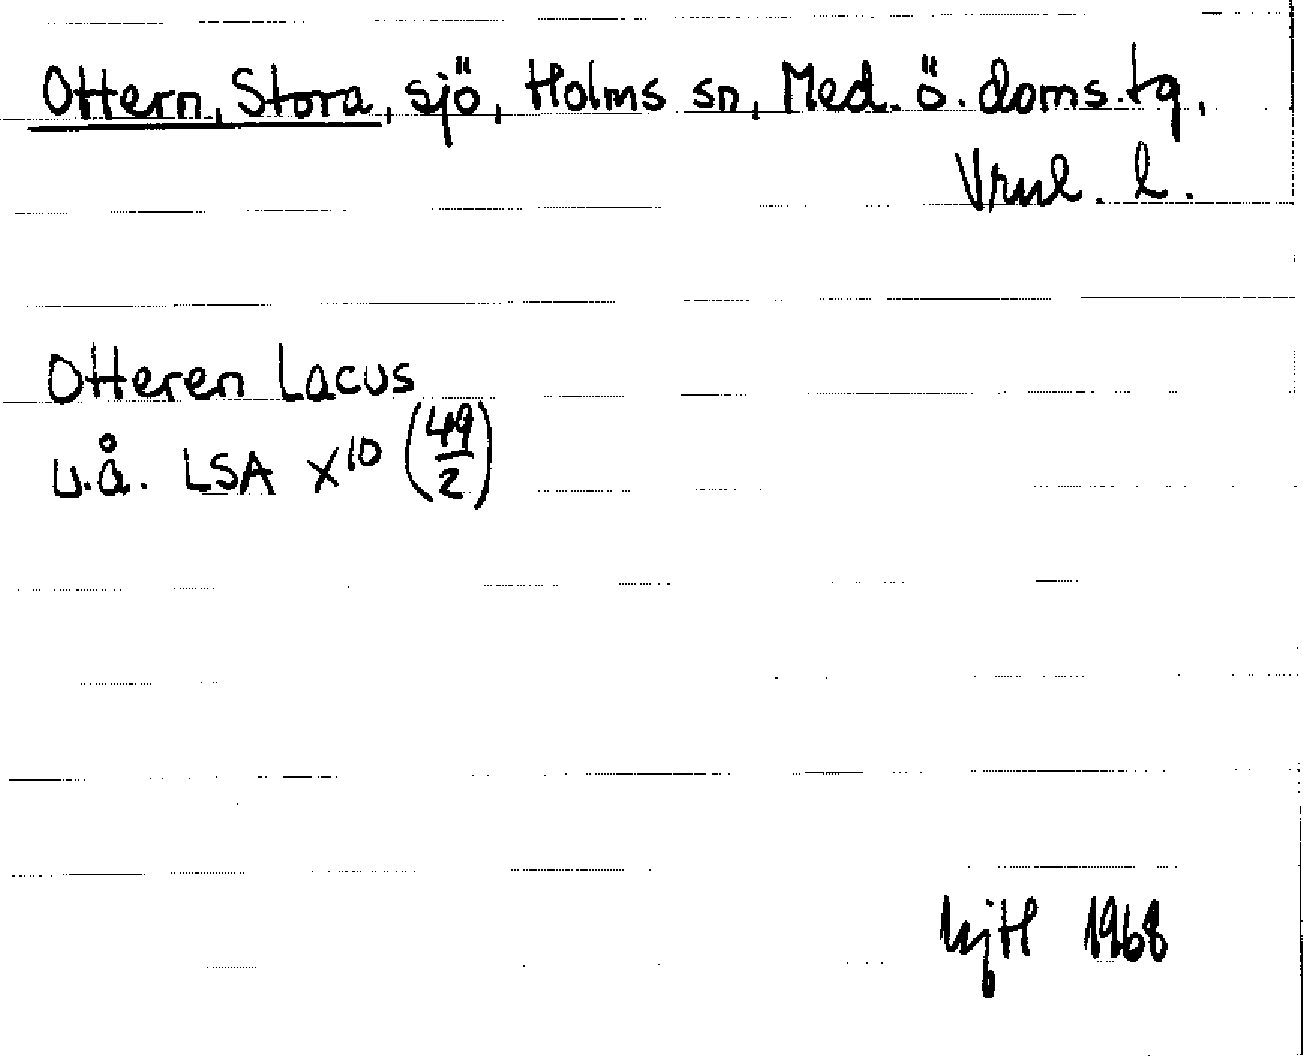 Ottern, Stora, sjö, Holms sn, Med. ö. doms.tg,
Vrnl. l.
Otteren Lacus
u.å. LSA X¹⁰ (49/2)
1968